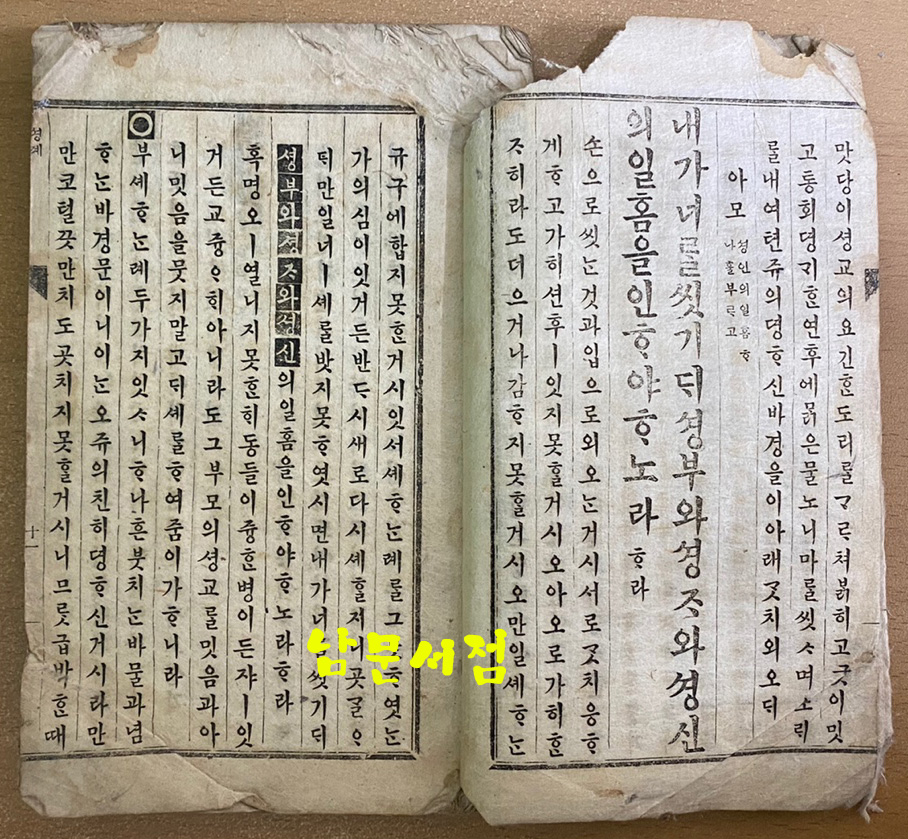 맛당이셩교의요긴ᄒᆞᆫ도리ᄅᆞᆯᄀᆞᄅᆞ쳐ᄇᆞᆰ히고굿이밋
고통회뎡ᄀᆡᄒᆞᆫ연후에ᄆᆞᆰ은물노니마ᄅᆞᆯ씻ᄉᆞ며소ᄅᆡ
ᄅᆞᆯ내여텬쥬의뎡ᄒᆞ신바경을이아래ᄀᆞᆺ치외오ᄃᆡ
아모 셩인의일홈ᄒᆞ나흘부ᄅᆞ고
내가너ᄅᆞᆯ씻기ᄃᆡ셩부와셩ᄌᆞ와셩신
의일홈을인ᄒᆞ야ᄒᆞ노라ᄒᆞ라
손으로씻ᄂᆞᆫ것과입으로외오ᄂᆞᆫ거시서로ᄀᆞᆺ치응ᄒᆞ
게ᄒᆞ고가히션후ㅣ잇지못ᄒᆞᆯ거시오아오로가히ᄒᆞᆫ
ᄌᆞ히라도더으거나감ᄒᆞ지못ᄒᆞᆯ거시오만일셰ᄒᆞᄂᆞᆫ
규구에합지못ᄒᆞᆫ거시잇서셰ᄒᆞᄂᆞᆫ례ᄅᆞᆯ그ᄒᆞ엿ᄂᆞᆫ
가의심이잇거든반ᄃᆞ시새로다시셰ᄒᆞᆯ저니곳ᄀᆞᆯᄋᆞ
ᄃᆡ만일너ㅣ셰ᄅᆞᆯ밧지못ᄒᆞ엿시면내가너씻기ᄃᆡ
셩부와셩ᄌᆞ와셩신의일홈을인ᄒᆞ야ᄒᆞ노라ᄒᆞ라
혹명오ㅣ열니지못ᄒᆞᆫᄒᆡ동들이즁ᄒᆞᆫ병이든쟈ㅣ잇
거든교즁ᄋᆞᄒᆡ아니라도그부모의셩교ᄅᆞᆯ밋음과아
니밋음을뭇지말고ᄃᆡ셰ᄅᆞᆯᄒᆞ여줌이가ᄒᆞ니라
○부셰ᄒᆞᄂᆞᆫ례두가지잇ᄉᆞ니ᄒᆞ나흔붓치ᄂᆞᆫ바물과념
ᄒᆞᄂᆞᆫ바경문이니이ᄂᆞᆫ오쥬의친히뎡ᄒᆞ신거시라만
만코텰끗만치도곳치지못ᄒᆞᆯ거시니므ᄅᆞᆺ급박ᄒᆞᆫ때
十一
남문서점